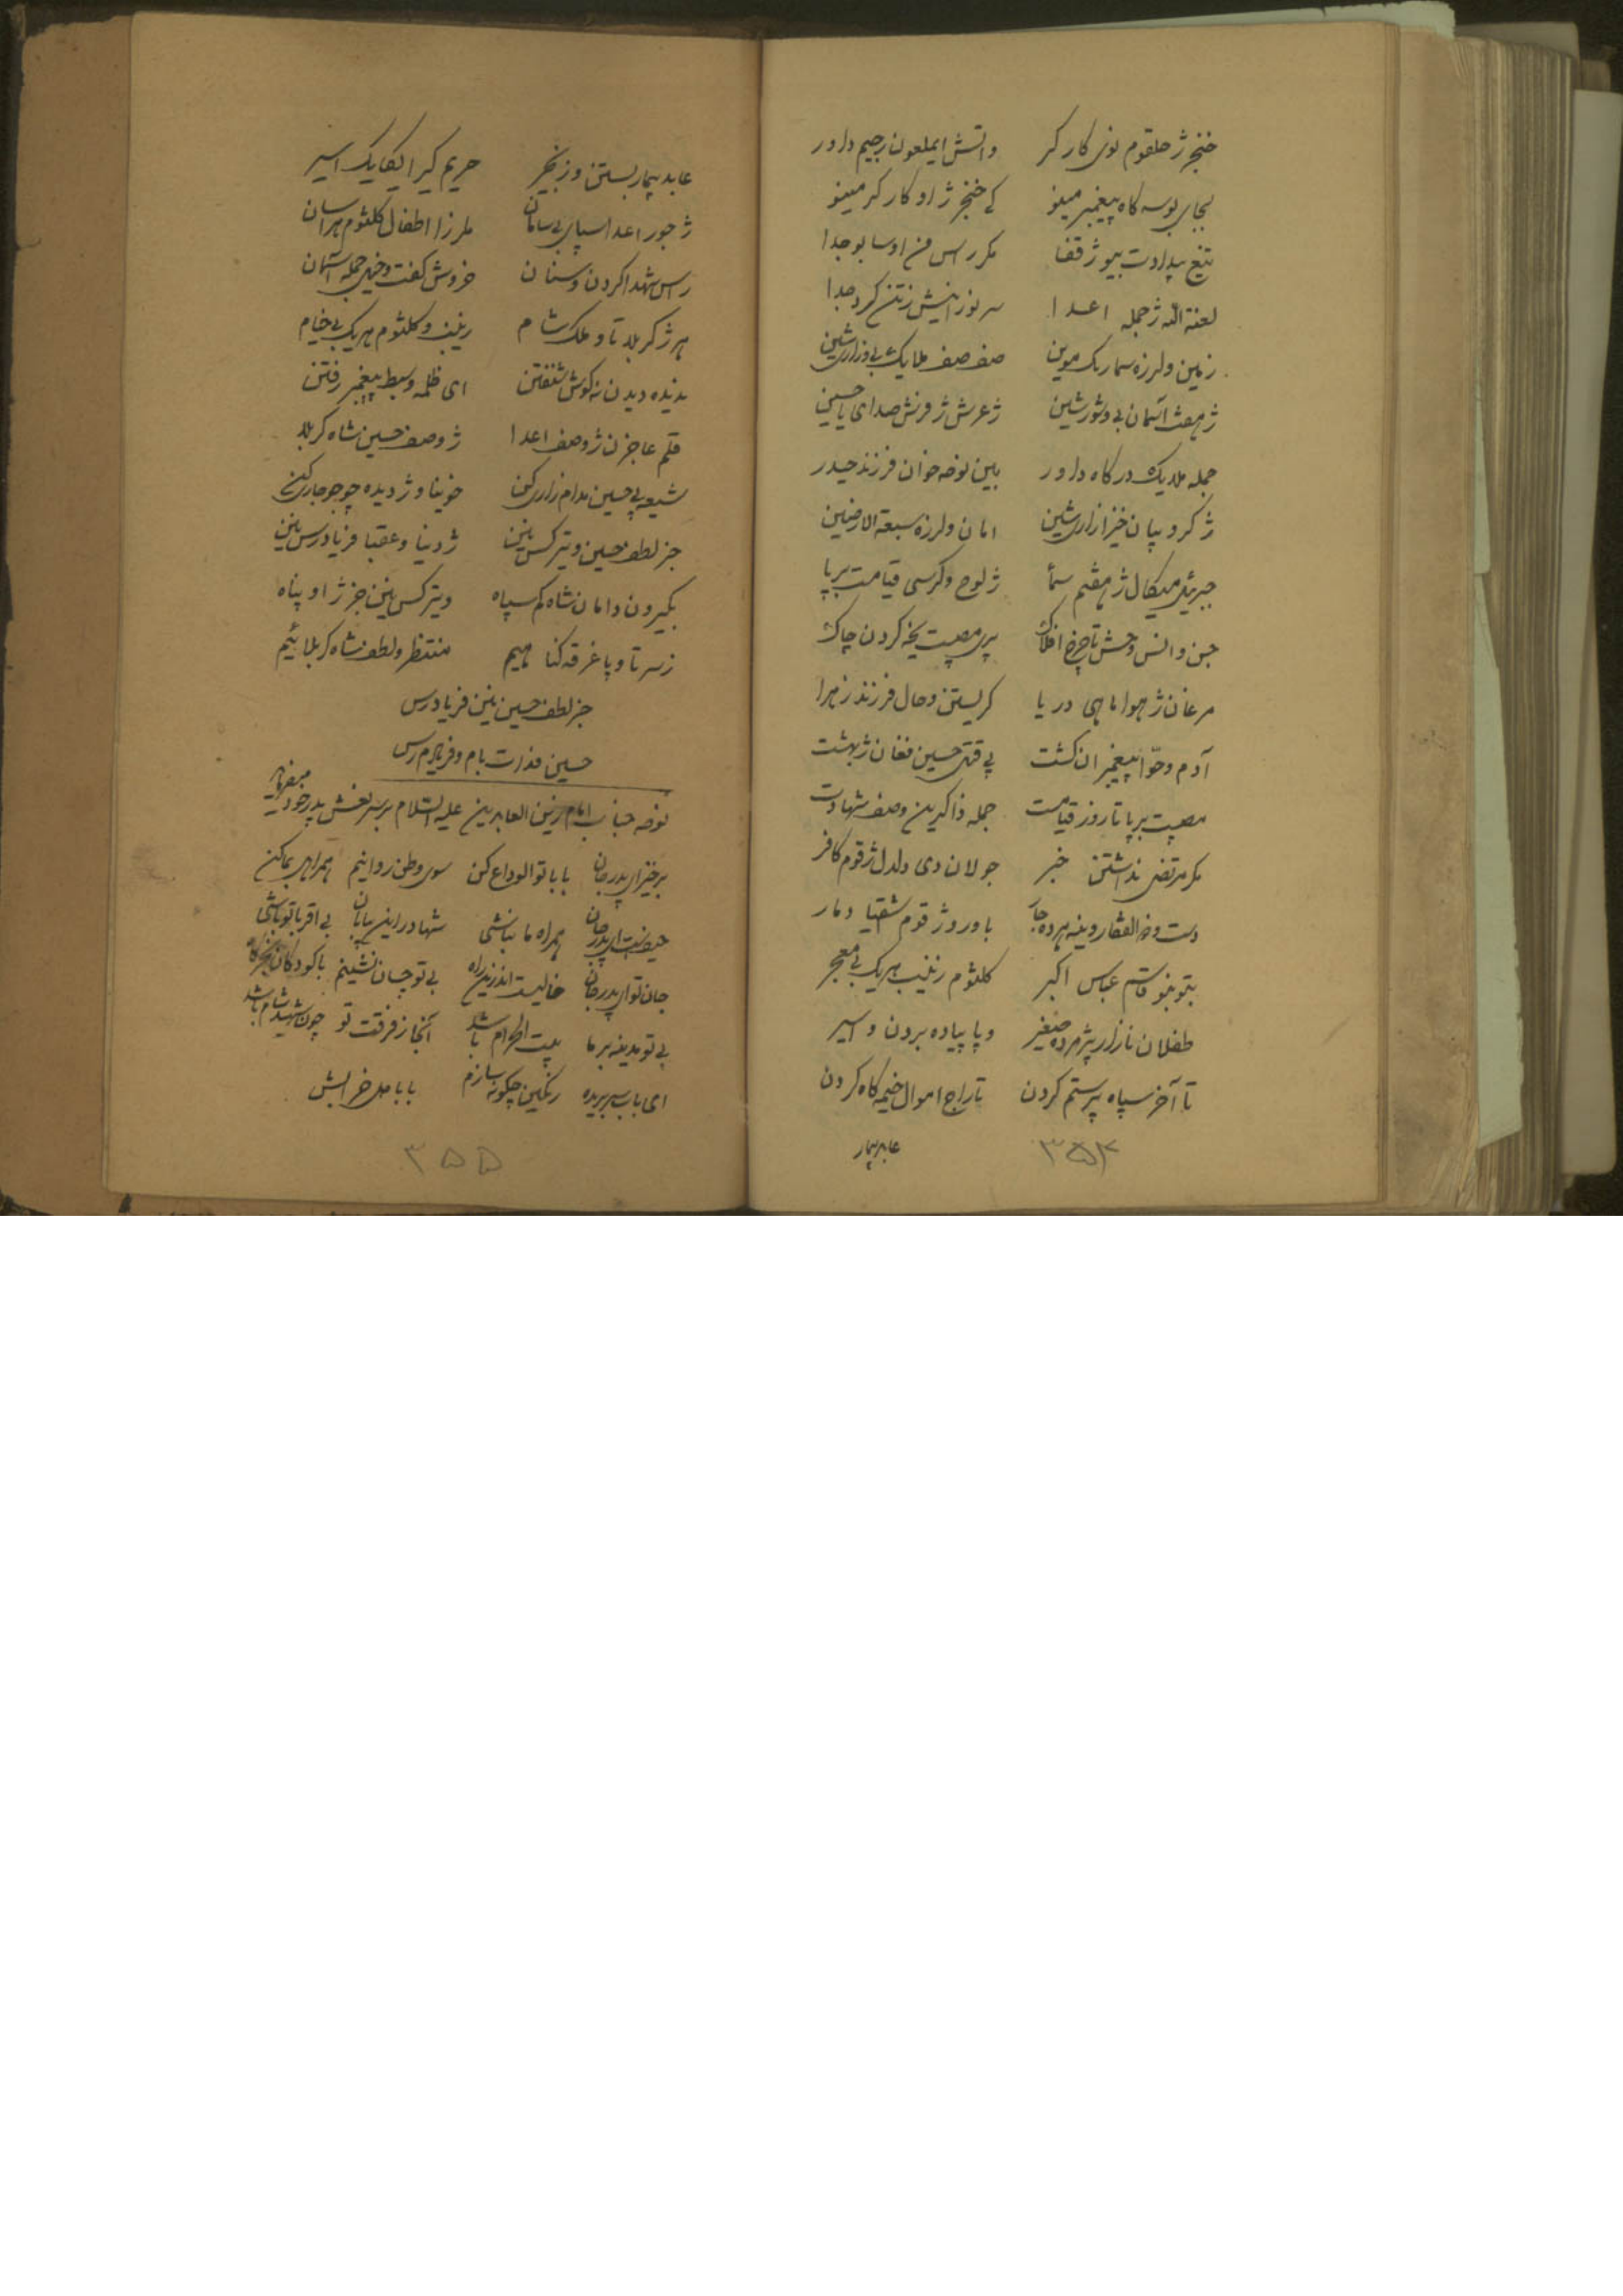 خنجر ژ حلقوم نوی کارکر واتش ایملعون رجیم داور
بجای بوسه کاه پیغمبر مینو کی خنجر ژ او کارکر مینو
تیغ بیدادت بیو ژ قفا مکر راس من اوسا بو جدا
لعنة الله ژ جمله اعدا سر نورانیش ز تن کرد جدا
زمین ولرزه سما رنک موین صف صف ملایک بی وزاری شین
ژ هفت آسمان بی وشور شین ژ عرش ژ فرش صدای یا حسین
جمله ملایک درکاه داور بین نوحه خوان فرزند حیدر
ژ کروبیان خیزا زاری شین امان ولرزه سبعة الارضین
جبرئیل میکال ژ هفتم سمأ ژ لوح وکرسی قیامت برپا
جن و انس وحش تا چرخ افلاک پری مصیبت یخه کردن چاک
مرغان ژ هوا ماهی دریا کریستن وحال فرزند زهرا
آدم وحوا پیغمبران کشت پی قتل حسین فغان ژ بهشت
مصیبت برپا تا روز قیامت جمله ذاکرین وصف شهادت
مکر مرتضی نداشتن خبر جولان دی دلدل ژ قوم کافر
دست وذوالفقار وینه هر ده جار باورو ژ قوم اشقیا دمار
قاسم عباس اکبر کلثوم زینب هریک بی معجر
طفلان نازار پژمرده صغیر وپا پیاده بردن و اسیر
تا آخر سپاه پرستم کردن تاراج اموال خیمه کاه کردن
عابد بیمار
۳۵۴
عابد بیمار بستن وزنجیر حریم کیرا یکایک اسیر
ژ جور اعدا سپای بی سامان ملرزا اطفال کلثوم هراسان
راس شهدا کردن وسنان خروش کفت وخیل جمله آسمان
هر ژ کربلا تا و ملک شام زینب و کلثوم هریک بی خیام
ندیده دیدن نه کوش شنفتن ای ظلمه وسبط پیغمبر رفتن
قلم عاجزن ژ وصف اعدا ژ وصف حسین شاه کربلا
شیعه پی حسین مدام زاری کن خویناو ژ دیده چو جو جاری کن
جز لطف حسین ویتر کس نین ژ دنیا وعقبا فریادرس نین
بکیرون دامان شاه کم سپاه ویتر کس نین جز ژ او پناه
ز سر تا و پا غرقه کناهیم منتظر ولطف شاه کربلائیم
جز لطف حسین نین فریادرس
حسین فدات بام وفریادم رس
نوحه جناب امام زین العابدین علیه السلام بر سر نعش پدر خود میفرماید
برخیز ای پدر جان بابا تو الوداع کن سوی وطن روانیم همراهی بما کن
حیف است ای پدر جان همراه ما نباشی تنها در این بیابان بی اقربا تو باشی
جان تو ای پدر جان خالیست اندرین راه بی تو چسان نشینم با کودکان
بی تو مدینه بر ما بیت الحرام باشد آنجا ز فرقت تو چون شهر شام باشد
ای باب سر بریده رنکین چکونه سازم بابا
۳۵۵